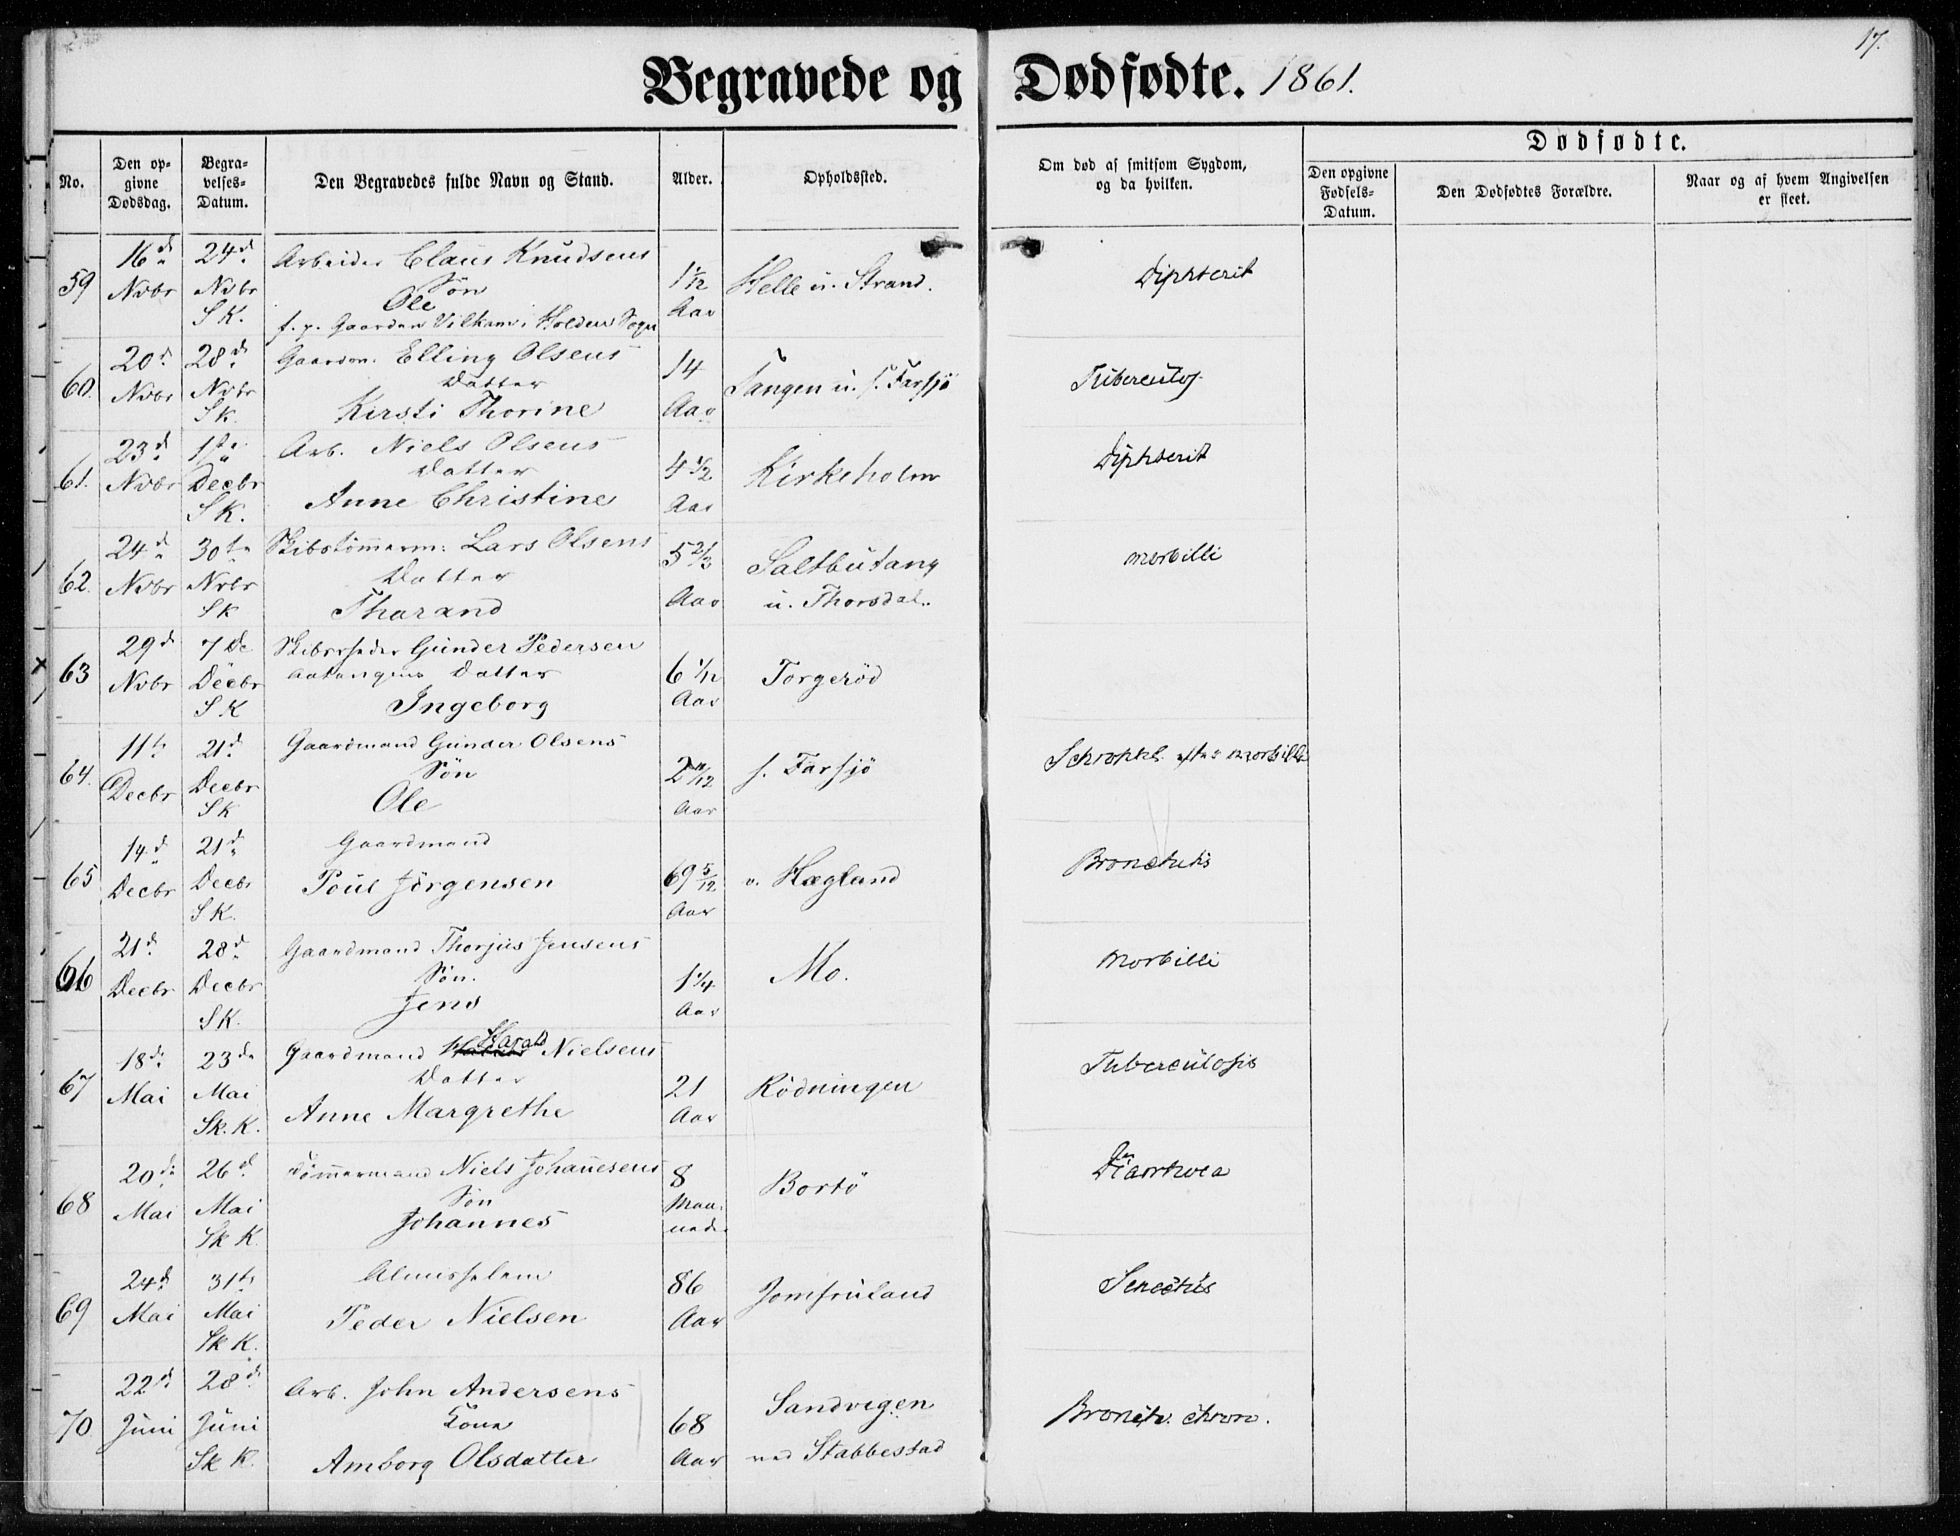 17.
Begravede og Dødfødte. 1861.
No.
Den op-
givne
Dødsdag.
Begra-
velses-
Datum.
Den Begravedes fulde Navn og Stand.
Alder.
Opholdssted.
Om død af smitsom Sygdom,
og da hvilken.
Dødfødte.
Den opgivne
Fødsels-
Datum.
Den Dødfødtes Forældre.
Naar og af hvem Angivelsen
er skeet.
59
16d
Nvbr
24d
Nvbr
SK.
Arbeider Claus Knudsens
Søn
Ole
f. p. Gaarden i Holden Sogn
1 1/12
Aar
Helle u. Strand.
Diphterit
60.
20d
Nvbr
28d
Nvbr
SK.
Gaardm. Elling Olsens
Datter
Kirsti Thorine
14
Aar
Tangen u. s. Farsjø
Tuberculos.
61.
23d
Nvbr
1ste
Decbr
SK.
Arb. Niels Olsens
Datter
Anne Christine
4 1/2
Aar
Kirkeholm
Diphterit
62.
24d
Nvbr
30te
Nvbr
SK
Skibstømmerm: Lars Olsens
Datter
Tharand
5 2/3
Aar
Saltbutang
u. Thorsdal.
morbilli
63
29d
Nvbr
7de
Decbr
SK
Gunder Pedersen
Datter
Ingeborg
6 1/12
Aar
Torgerød
64.
11te
Decbr
21d
Decbr
SK
Gaardmand Gunder Olsens
Søn
Ole
2 11/12
Aar
s. Farsjø
morbilli
65
14d
Decbr
21d
Decbr
SK.
Gaardmand
Poul Jørgensen
69 5/12
Aar
v. Hægland
Bronchitis
66
21d
Decbr
28d
Decbr
SK.
Gaardmand Thorjus Jensens
Søn.
Jens
1 1/4
Aar
Mo.
Morbilli
67
18de
Mai
23de
Mai
Sk. K.
Gaardmand Harald Nielsens
Datter
Anne Margrethe
21
Aar
Rødningen
Tuberculosis
68
20de
Mai
26d
Mai
Sk K.
Tømmermand Niels Johanesens
Søn
Johannes
8
Maa-
neder
Bortø
Diarrhoea
69
24d
Mai
31te
Mai
Sk K.
Almisselem
Peder Nielsen
86
Aar
Jomfruland
Senectus
70
22d
Juni
28d
Juni
Sk K.
Arb. John Andersens
Kone
Amborg Olsdatter
68
Aar
Sandvigen
ved Stabbestad
Bronch. chron.